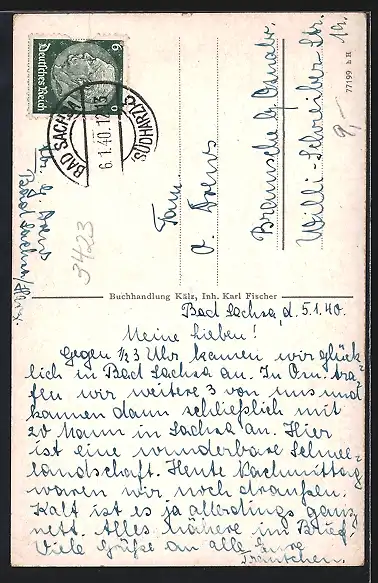 6
Deutsches Reich
BAD SACHSA
6.1.40.12
SÜDHARZ
Fam.
A. Drews
Bramsche b. Osnabr.
Willi-Schreiber-Str.
Bad Sachsa
3423
9,-
77199 h H
Buchhandlung Kälz, Inh. Karl Fischer
Bad Sachsa, d. 5.1.40.
Meine Lieben!
Gegen ½3 Uhr kamen wir glück-
lich in Bad Sachsa an. In Osn. tra-
fen wir weitere 3 von uns und
kamen dann schließlich mit
20 Mann in Sachsa an. Hier
ist eine wunderbare Schnee-
landschaft. Heute Nachmittag
waren wir noch draußen.
Kalt ist es ja allerdings ganz
nett. Alles nähere im Brief.
Viele Grüße an alle Eure
Träutchen.